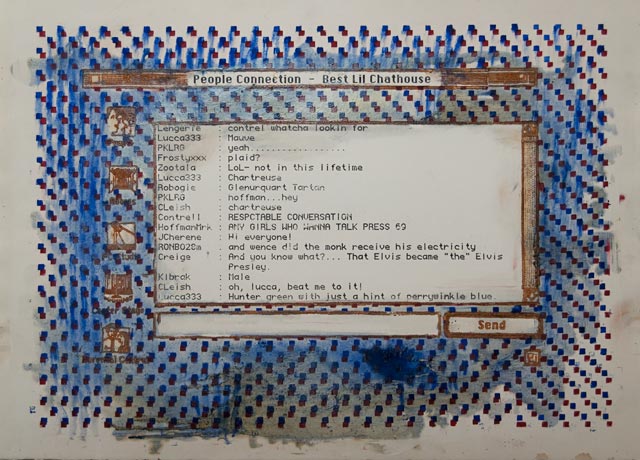 People Connection - Best Lil Chathouse
Lengerie : contrel whatcha lookin for
Lucca333 : Mauve
PKLRG : yeah..................
Frostyxxx : plaid?
Zootala : LoL- not in this lifetime
Lucca333 : Chartreuse
Robogie : Glenurquart Tartan
PKLRG : hoffman...hey
CLeish : chartreuse
Contrell : RESPCTABLE CONVERSATION
HoffmanMrk : ANY GIRLS WHO WANNA TALK PRESS 69
JCherene : Hi everyone!
RONBO28m : and wence did the monk receive his electricity
Creige : And you know what?... That Elvis became "the" Elvis
Presley.
Klbrak : Male
CLeish : oh, lucca, beat me to it!
Lucca333 : Hunter green with just a hint of perrywinkle blue.
Send